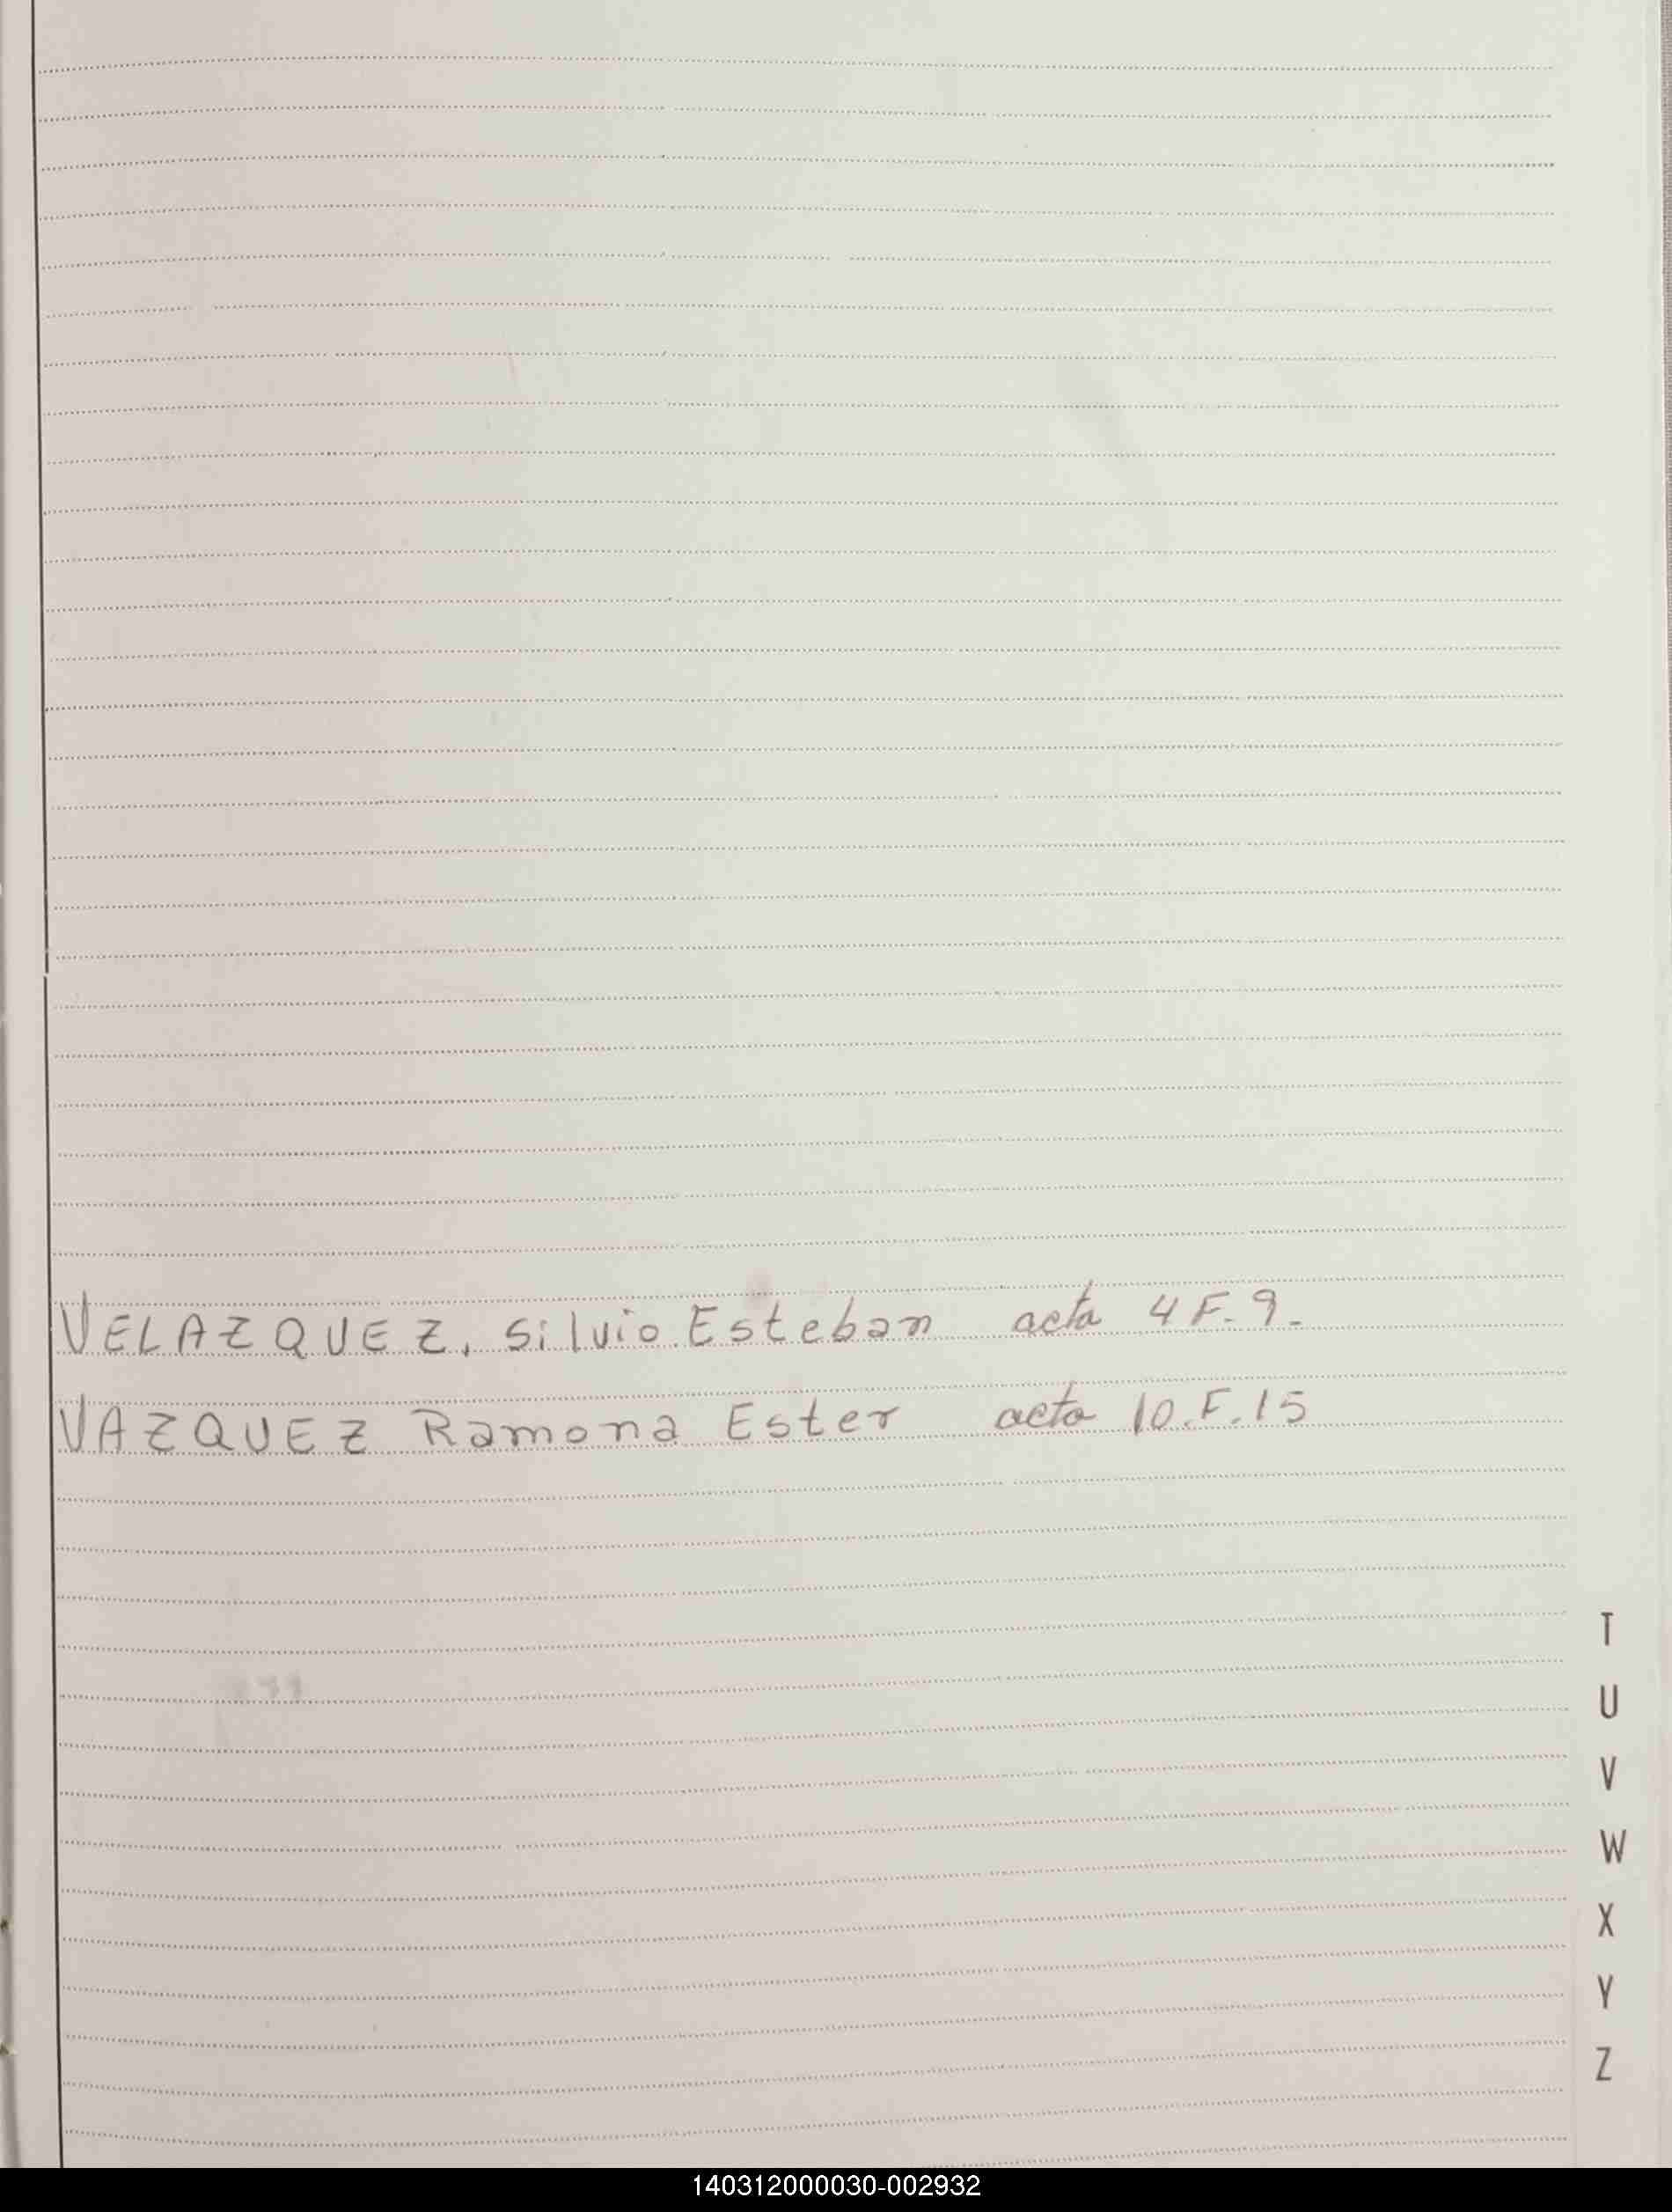 VELAZQUEZ, Silvio Esteban acta 4 F. 9.-
VAZQUEZ Ramona Ester acta 10.F.15
T
U
V
W
X
Y
Z
140312000030-002932